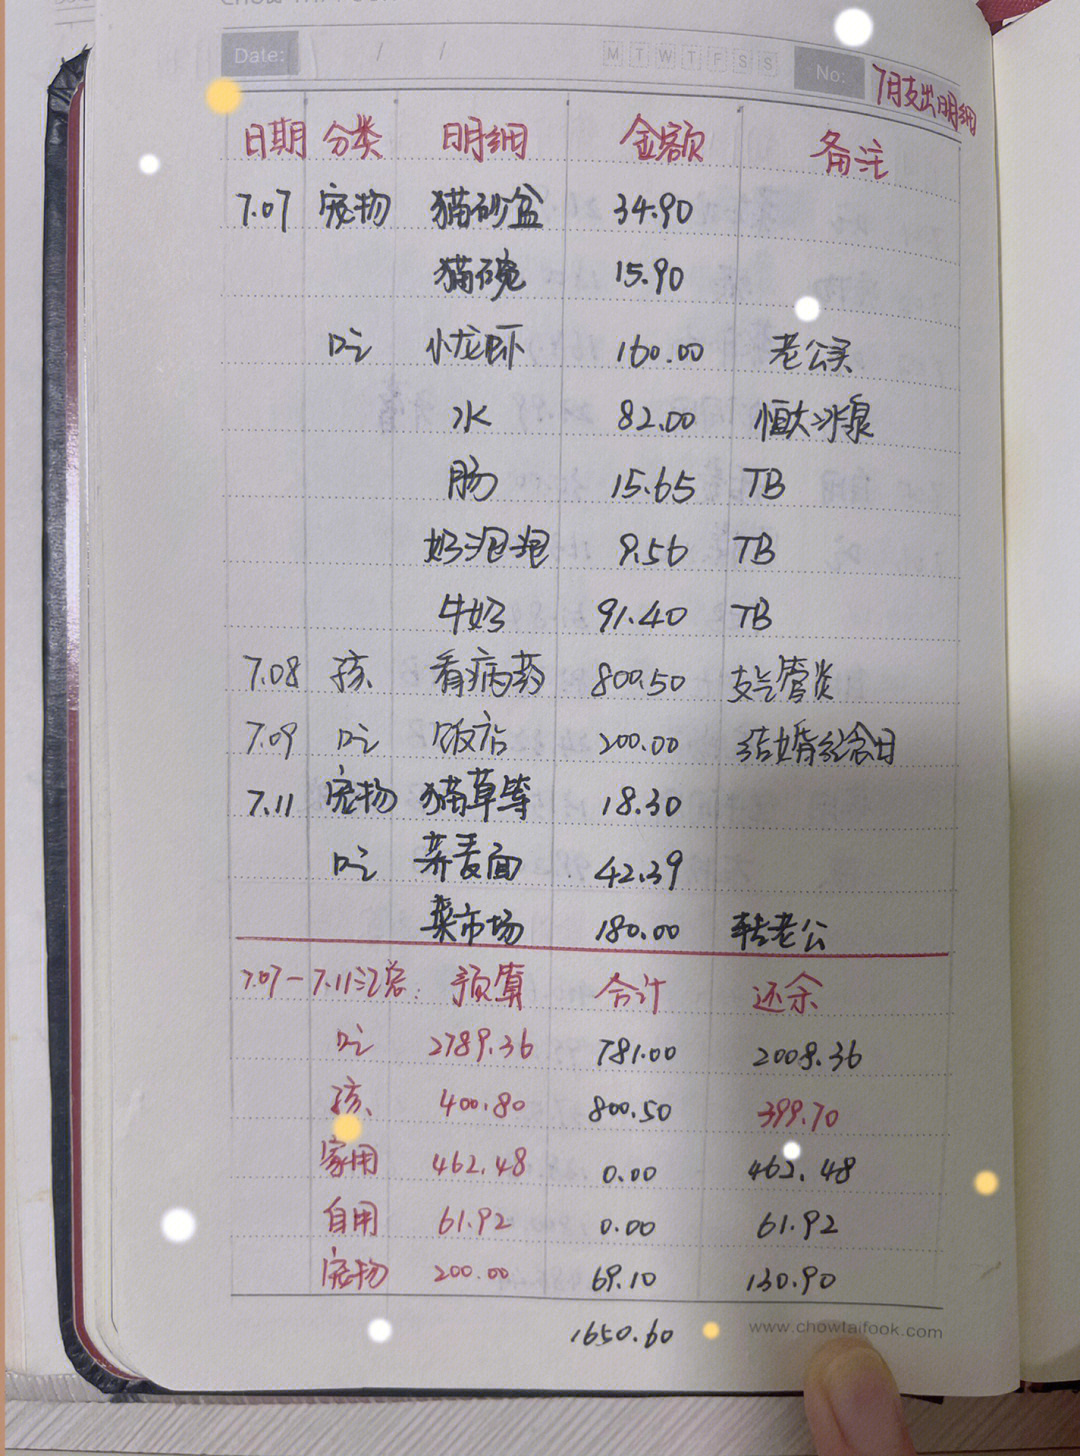 Date: / / M T W T F S S No: 7月支出明细
日期 分类 明细 金额 备注
7.07 宠物 猫砂盆 34.90
猫碗 15.90
吃 小龙虾 160.00 老公买
水 82.00 恒大冰泉
肠 15.65 TB
奶泡泡 9.56 TB
牛奶 91.40 TB
7.08 孩 看病药 800.50 支气管炎
7.09 吃 饭店 200.00 结婚纪念日
7.11 宠物 猫草等 18.30
吃 荞麦面 42.39
菜市场 180.00 转老公
7.07-7.11汇总: 预算 合计 还余
吃 2789.36 781.00 2008.36
孩 400.80 800.50 399.70
家用 462.48 0.00 462.48
自用 61.92 0.00 61.92
宠物 200.00 69.10 130.90
1650.60 www.chowtaifook.com